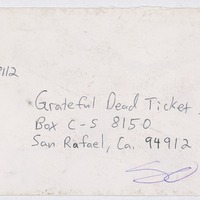 Grateful Dead Ticket
Box C-S 8150
San Rafael, Ca. 94912